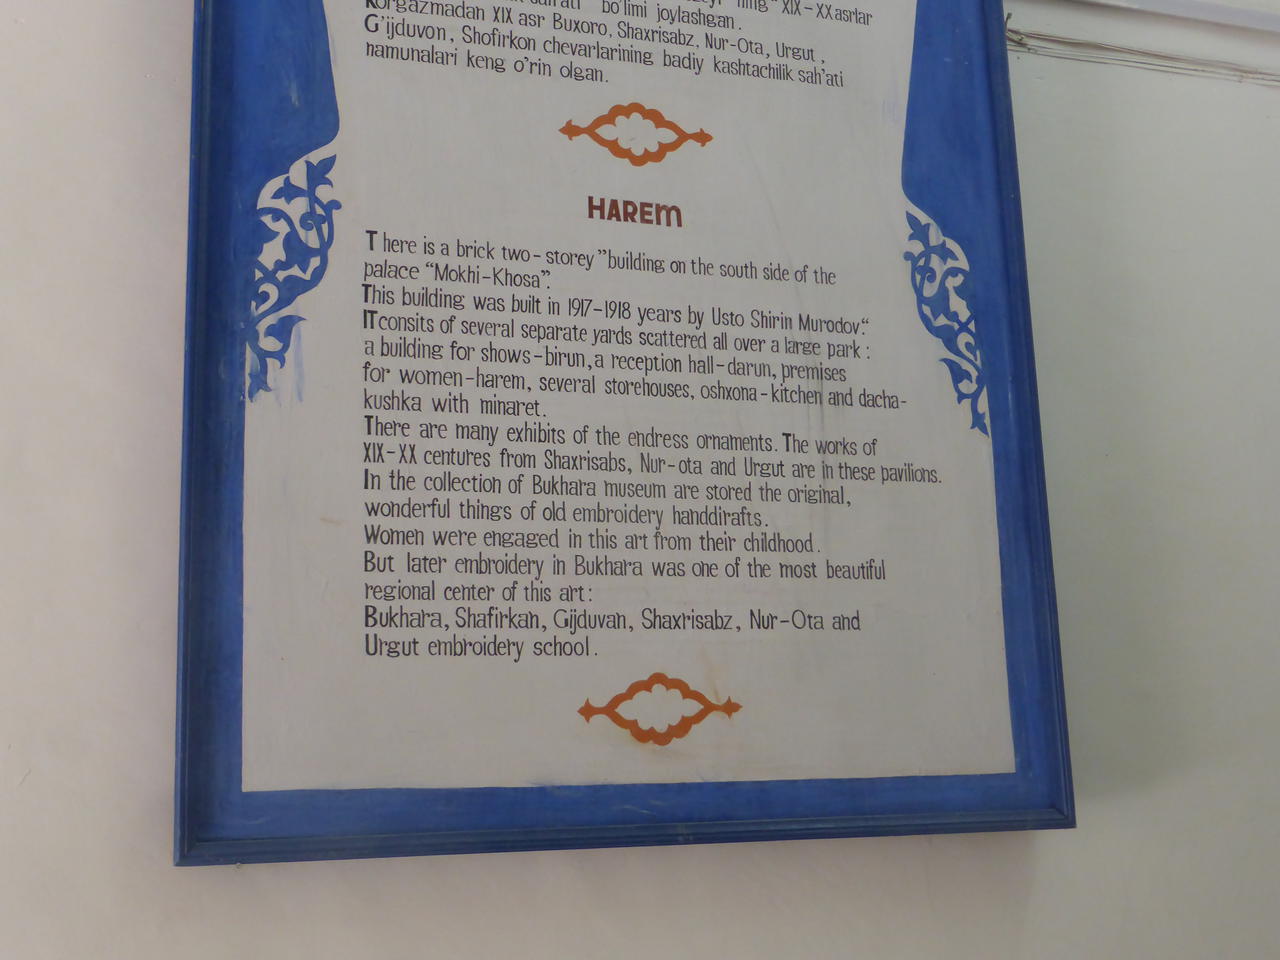 bo'limi joylashgan. XIX-XX asrlar
Ko'rgazmadan XIX asr Buxoro, Shaxrisabz, Nur-Ota, Urgut,
G'ijduvon, Shofirkon chevarlarining badiy kashtachilik sah'ati
namunalari keng o'rin olgan.
HAREM
There is a brick two-storey "building on the south side of the
palace "Mokhi-Khosa".
This building was built in 1917-1918 years by Usto Shirin Murodov".
ITconsits of several separate yards scattered all over a large park:
a building for shows-birun, a reception hall-darun, premises
for women-harem, several storehouses, oshxona-kitchen and dacha-
kushka with minaret.
There are many exhibits of the endress ornaments. The works of
XIX-XX centures from Shaxrisabs, Nur-ota and Urgut are in these pavilions.
In the collection of Bukhara museum are stored the original,
wonderful things of old embroidery handdirafts.
Women were engaged in this art from their childhood.
But later embroidery in Bukhara was one of the most beautiful
regional center of this art:
Bukhara, Shafirkan, Gijduvan, Shaxrisabz, Nur-Ota and
Urgut embroidery school.